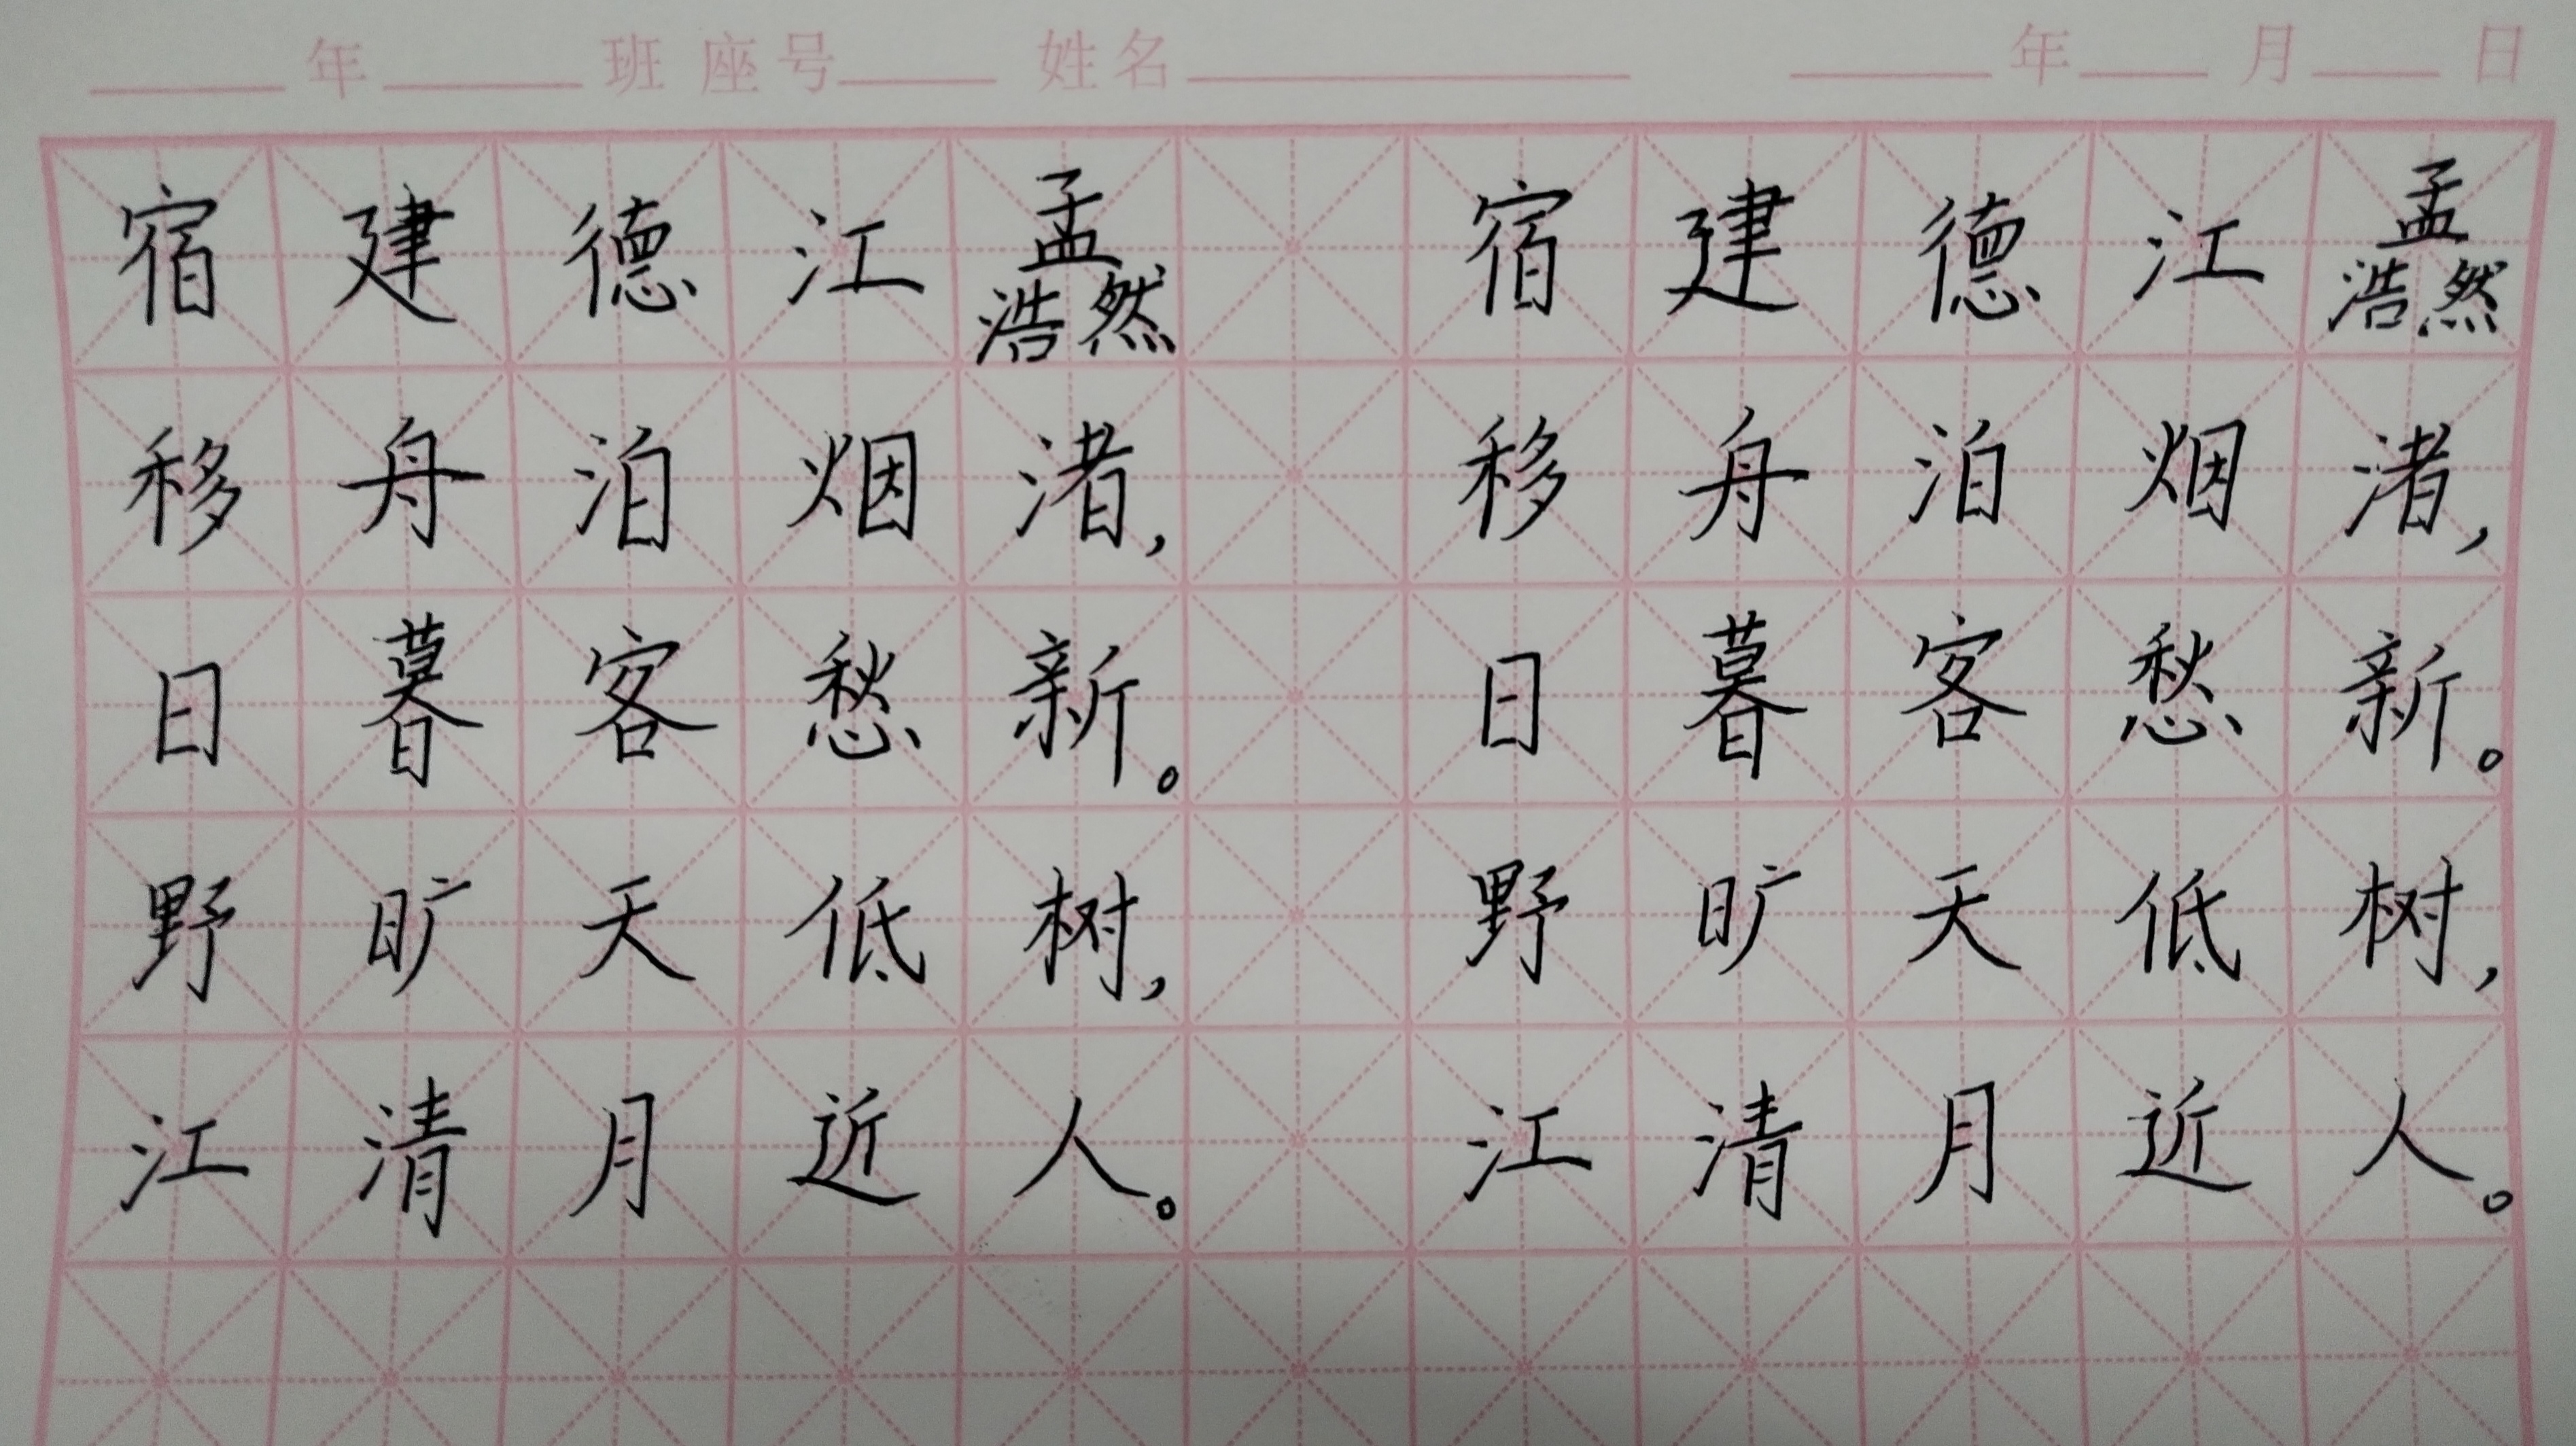 年 班 座号 姓名 年 月 日
宿建德江 孟浩然
移舟泊烟渚，
日暮客愁新。
野旷天低树，
江清月近人。
宿建德江 孟浩然
移舟泊烟渚，
日暮客愁新。
野旷天低树，
江清月近人。